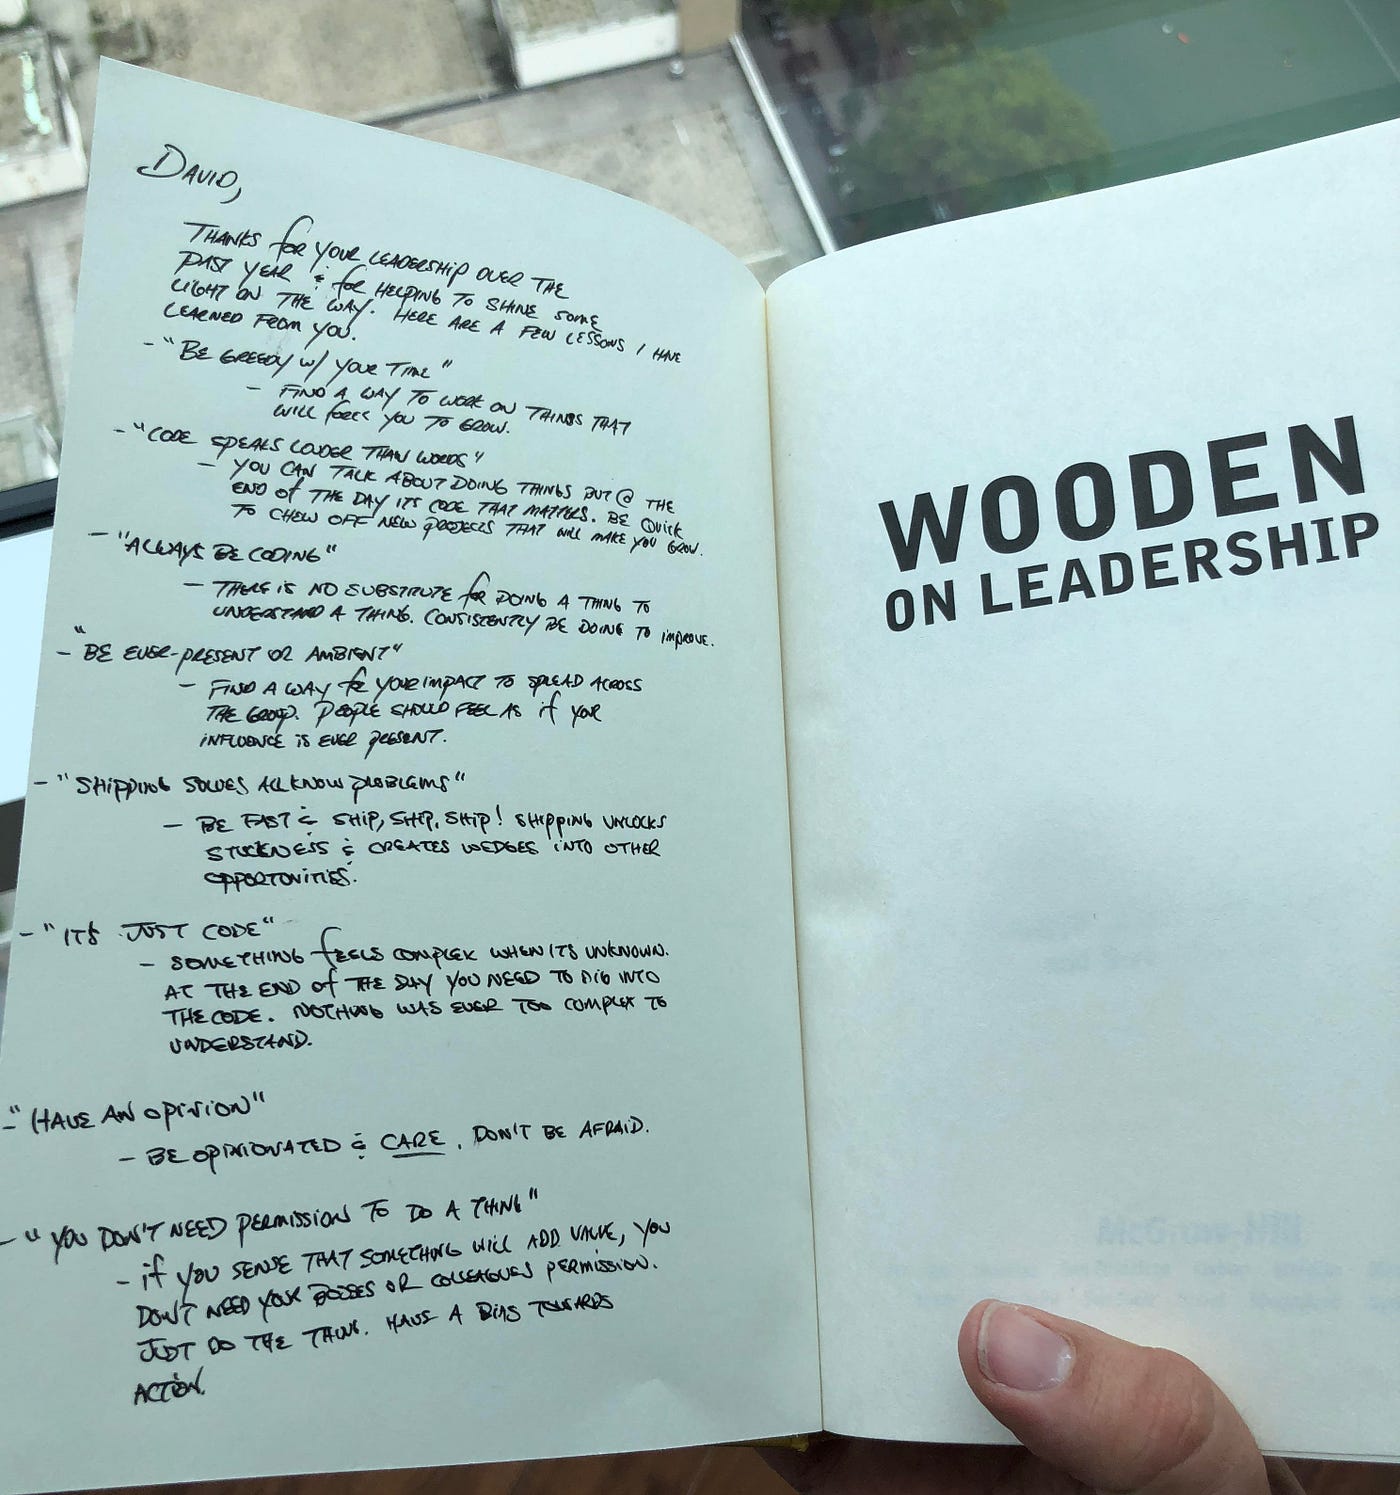 DAVID,
THANKS for YOUR LEADERSHIP OVER THE
PAST YEAR & for HELPING TO SHINE SOME
LIGHT ON THE WAY. HERE ARE A FEW LESSONS I HAVE
LEARNED FROM YOU.
- "BE GREEDY W/ YOUR TIME"
- FIND A WAY TO WORK ON THINGS THAT
WILL FORCE YOU TO GROW.
- "CODE SPEAKS LOUDER THAN WORDS"
- YOU CAN TALK ABOUT DOING THINGS BUT @ THE
END OF THE DAY ITS CODE THAT MATTERS. BE QUICK
TO CHEW OFF NEW PROJECTS THAT WILL MAKE YOU GROW.
- "ALWAYS BE CODING"
- THERE IS NO SUBSTITUTE for DOING A THING TO
UNDERSTAND A THING. CONSISTENTLY BE DOING TO IMPROVE.
- "BE EVER-PRESENT OR AMBIENT"
- FIND A WAY for YOUR IMPACT TO SPREAD ACROSS
THE GROUP. PEOPLE SHOULD FEEL AS if YOUR
INFLUENCE IS EVER PRESENT.
- "SHIPPING SOLVES ALL KNOW PROBLEMS"
- BE FAST & SHIP, SHIP, SHIP! SHIPPING UNLOCKS
STUCKNESS & CREATES WEDGES INTO OTHER
OPPORTUNITIES.
- "IT'S JUST CODE"
- SOMETHING FEELS COMPLEX WHEN ITS UNKNOWN.
AT THE END Of THE DAY YOU NEED TO DIG INTO
THE CODE. NOTHING WAS EVER TOO COMPLEX TO
UNDERSTAND.
- "HAVE AN OPINION"
- BE OPINIONATED & CARE. DON'T BE AFRAID.
- "YOU DON'T NEED PERMISSION TO DO A THING"
- if YOU SENSE THAT SOMETHING WILL ADD VALUE, YOU
DON'T NEED YOUR BOSSES OR COLLEAGUES PERMISSION.
JUST DO THE THING. HAVE A BIAS TOWARDS
ACTION.
WOODEN
ON LEADERSHIP